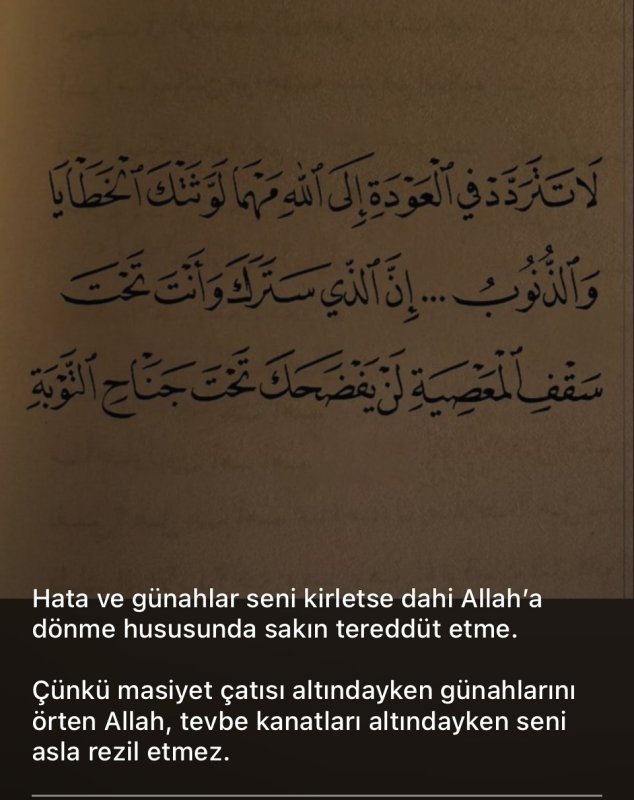 لَا تَتَرَدَّدْ فِي ٱلْعَوْدَةِ إِلَى ٱللهِ مَهْمَا لَوَّثَتْكَ ٱلْخَطَايَا
وَٱلذُّنُوبُ ... إِنَّ ٱلَّذِي سَتَرَكَ وَأَنْتَ تَحْتَ
سَقْفِ ٱلْمَعْصِيَةِ لَنْ يَفْضَحَكَ تَحْتَ جَنَاحِ ٱلتَّوْبَةِ
Hata ve günahlar seni kirletse dahi Allah’a
dönme hususunda sakın tereddüt etme.
Çünkü masiyet çatısı altındayken günahlarını
örten Allah, tevbe kanatları altındayken seni
asla rezil etmez.